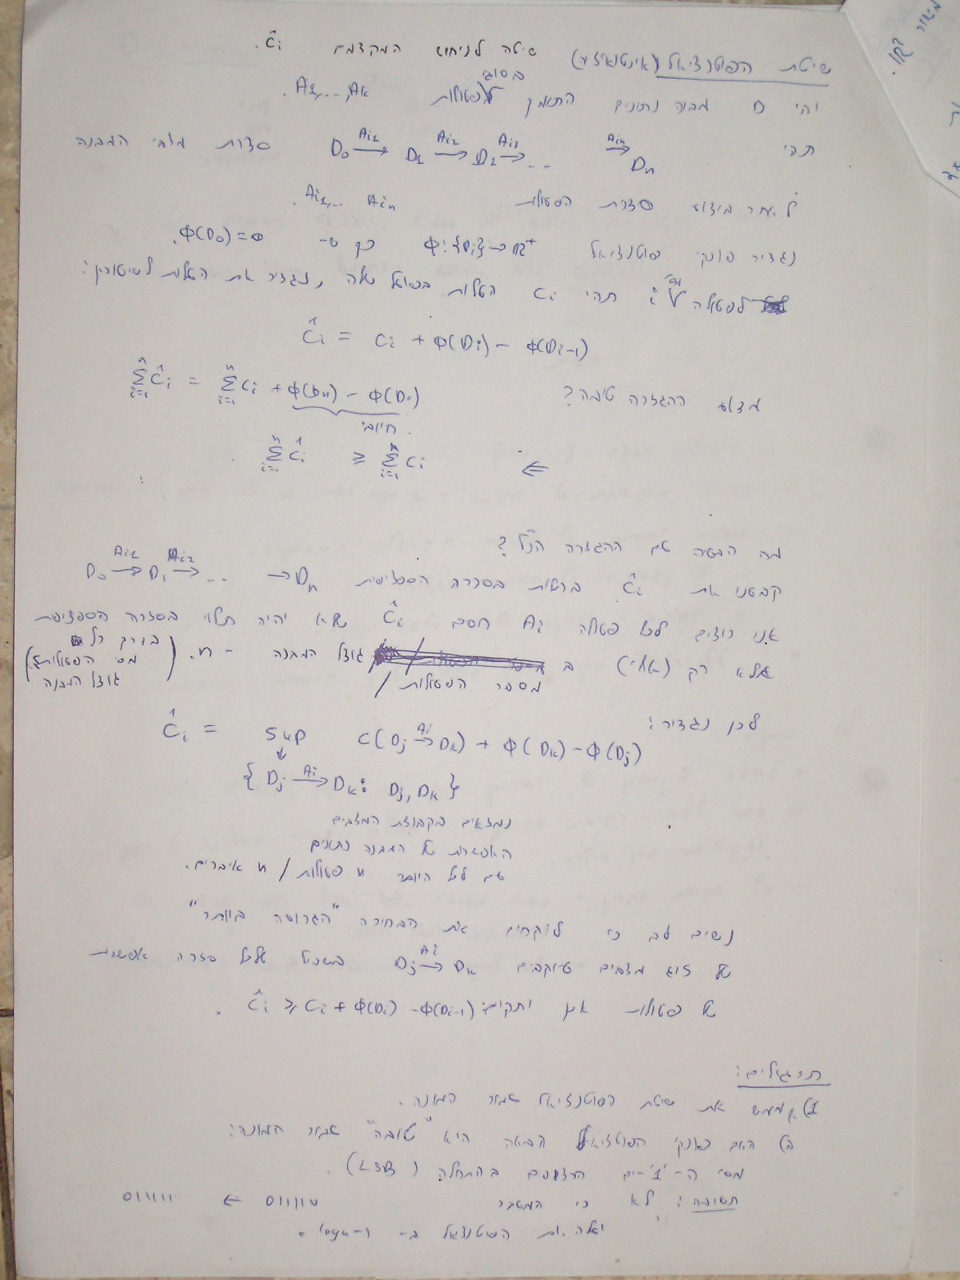 שיטת הפוטנציאל (אינטגרלי) שיטה לניחוש המקדמים ĉᵢ.
יהי D מבנה נתונים התומך בסוגי פעולות A₁,...,Aₖ.
תהי D₀ →(Aᵢ₁) D₁ →(Aᵢ₂) D₂ →(Aᵢ₃) ... →(Aᵢₙ) Dₙ סדרת מצבי המבנה
לאחר ביצוע סדרת הפעולות Aᵢ₁,... Aᵢₙ.
נגדיר פונק' פוטנציאל Φ:{Dᵢ}→ℝ⁺ כך ש- Φ(D₀)=0.
לפעולה מס' i תהי cᵢ העלות בפועל שלה, נגדיר את העלות לשיעורין:
ĉᵢ = cᵢ + Φ(Dᵢ) − Φ(Dᵢ₋₁)
מדוע ההגדרה טובה?
Σᵢ₌₁ⁿ ĉᵢ = Σᵢ₌₁ⁿ cᵢ + Φ(Dₙ) − Φ(D₀)
חיובי.
⇐ Σᵢ₌₁ⁿ ĉᵢ ≥ Σᵢ₌₁ⁿ cᵢ
מה הבעיה עם ההגדרה הנ"ל?
קבענו את ĉᵢ בסדרה הספציפית D₀ →(Aᵢ₁) D₁ →(Aᵢ₂) ... → Dₙ
אנו רוצים לכל פעולה Aᵢ חסם ĉᵢ שלא יהיה תלוי בסדרה הספציפית
אלא רק (אולי) ב מספר הפעולות / גודל המבנה - n. (בדרך כלל מס' הפעולות ≥ גודל המבנה)
לכן נגדיר:
ĉᵢ = sup c(Dⱼ →(Aᵢ) Dₖ) + Φ(Dₖ) − Φ(Dⱼ)
{Dⱼ →(Aᵢ) Dₖ : Dⱼ, Dₖ}
נמצאים בקבוצת המצבים
האפשרית של המבנה נתונים
עם לכל היותר n פעולות / n איברים.
נשים לב כי לוקחים את הבחירה "הגרועה ביותר"
של זוג מצבים עוקבים Dⱼ →(Aᵢ) Dₖ בשביל שלכל סדרה אפשרית
של פעולות אכן יתקיים: ĉᵢ ≥ cᵢ + Φ(Dᵢ) − Φ(Dᵢ₋₁).
תרגילים:
1) א) ממש את שיטת הפוטנציאל עבור המונה.
ב) האם פונק' הפוטנציאל הבאה היא "טובה" עבור המונה:
מס' ה-'1'-ים הרצופים בהתחלה (LSB).
תשובה: לא כי המעבר ← 0111111